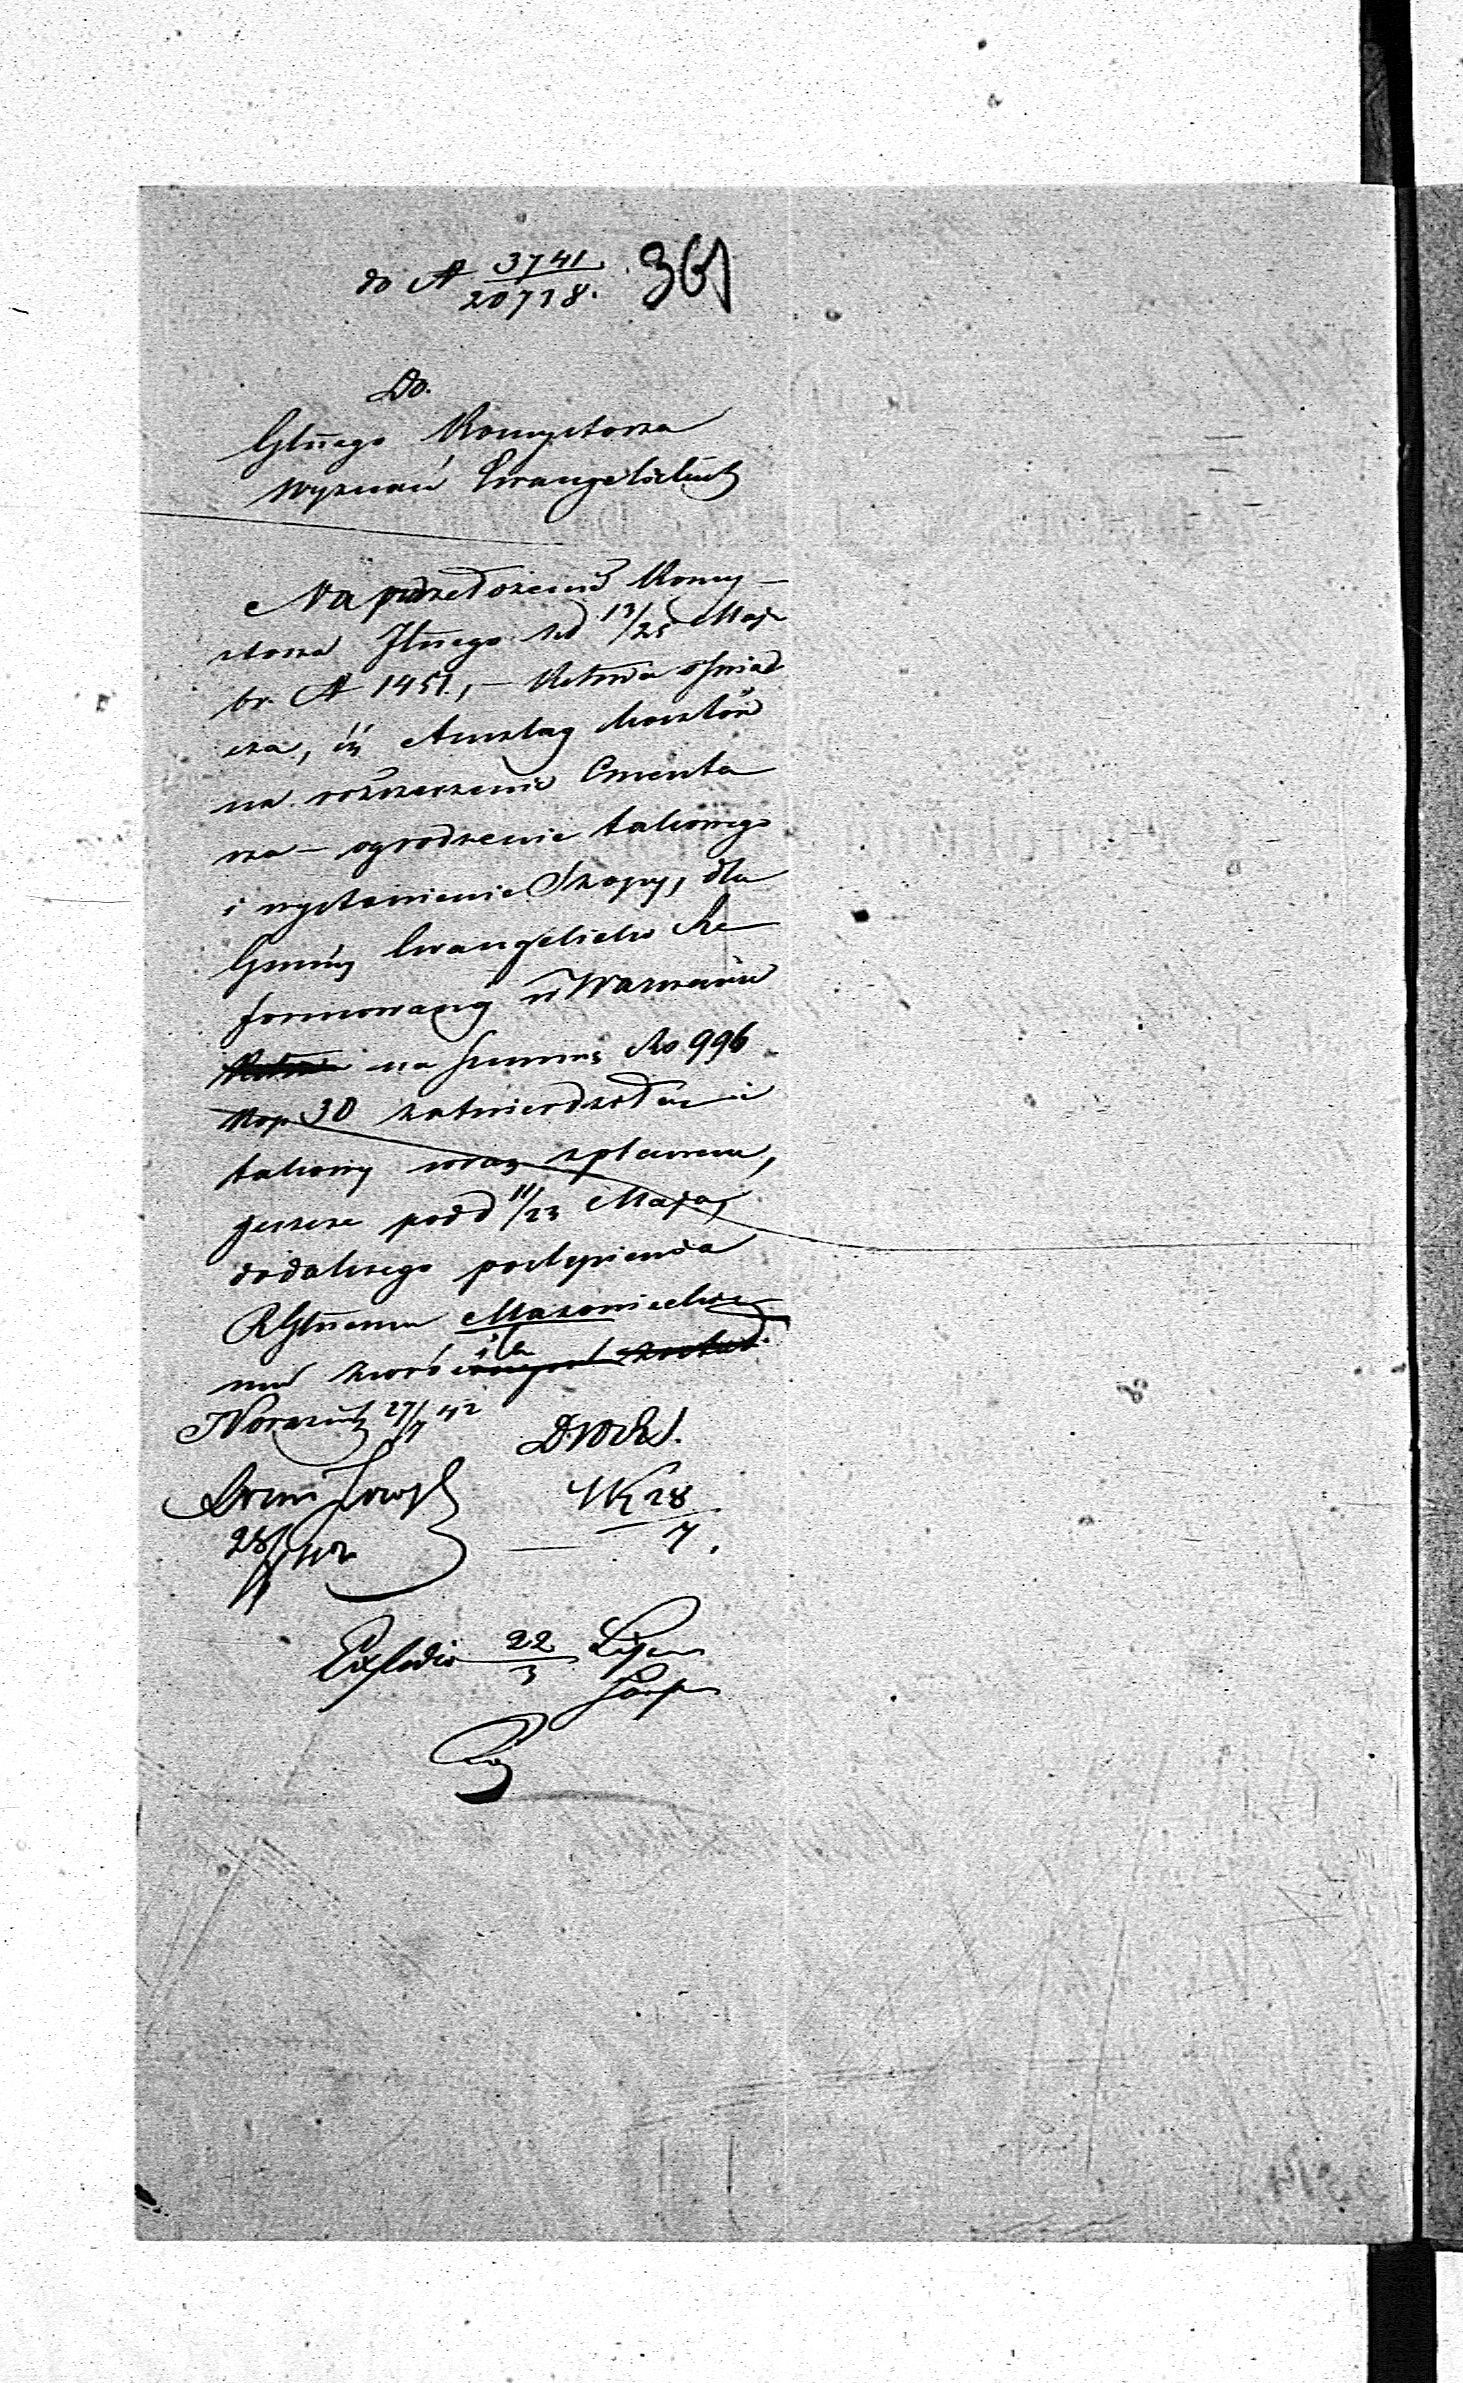 do N 3741/20718. 361
Do.
Głłnego Konsystorza
Wyznań Ewangelickich
Na przedłożenie Konsy-
storza Głłnego z d 13/25 Maja
br. N 1451, – Kctwa oświad
cza, iż Anszlag kosztów
na rozszerzenie Cmenta
rza – ogrodzenie takowego
i wystawienie Szopy, dla
Gminy Ewangelicko Re
formowanej w Warszawie
na summę Rs 996
Kop 30 zatwierdziła i
takowy wraz z planem,
jeszcze pod d 11/23 Maja,
do dalszego postąpienia
RGłłnemu Mazowieckie
mu zwróciła
28/7 42
28
7.
22
3